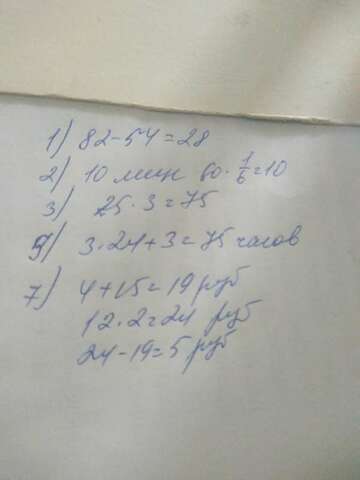 1) 82-54=28
2) 10 мин 60·1/6=10
3) 25·3=75
5) 3·24+3=75 часов
7) 4+15=19 руб
12·2=24 руб
24-19=5 руб